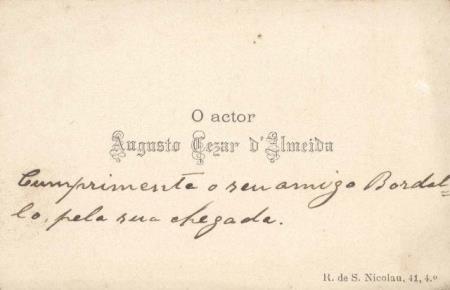 O actor
Augusto Cezar d'Almeida
Cumprimenta o seu amigo Bordal=
lo, pela sua chegada.
R. de S. Nicolau, 41, 4.º